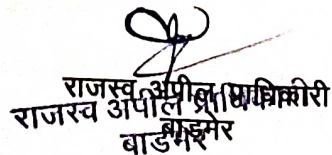 राजस्व अपील प्राधिकारी
राजस्व अपील प्राधिकारी
बाडमेर
बाडमेर